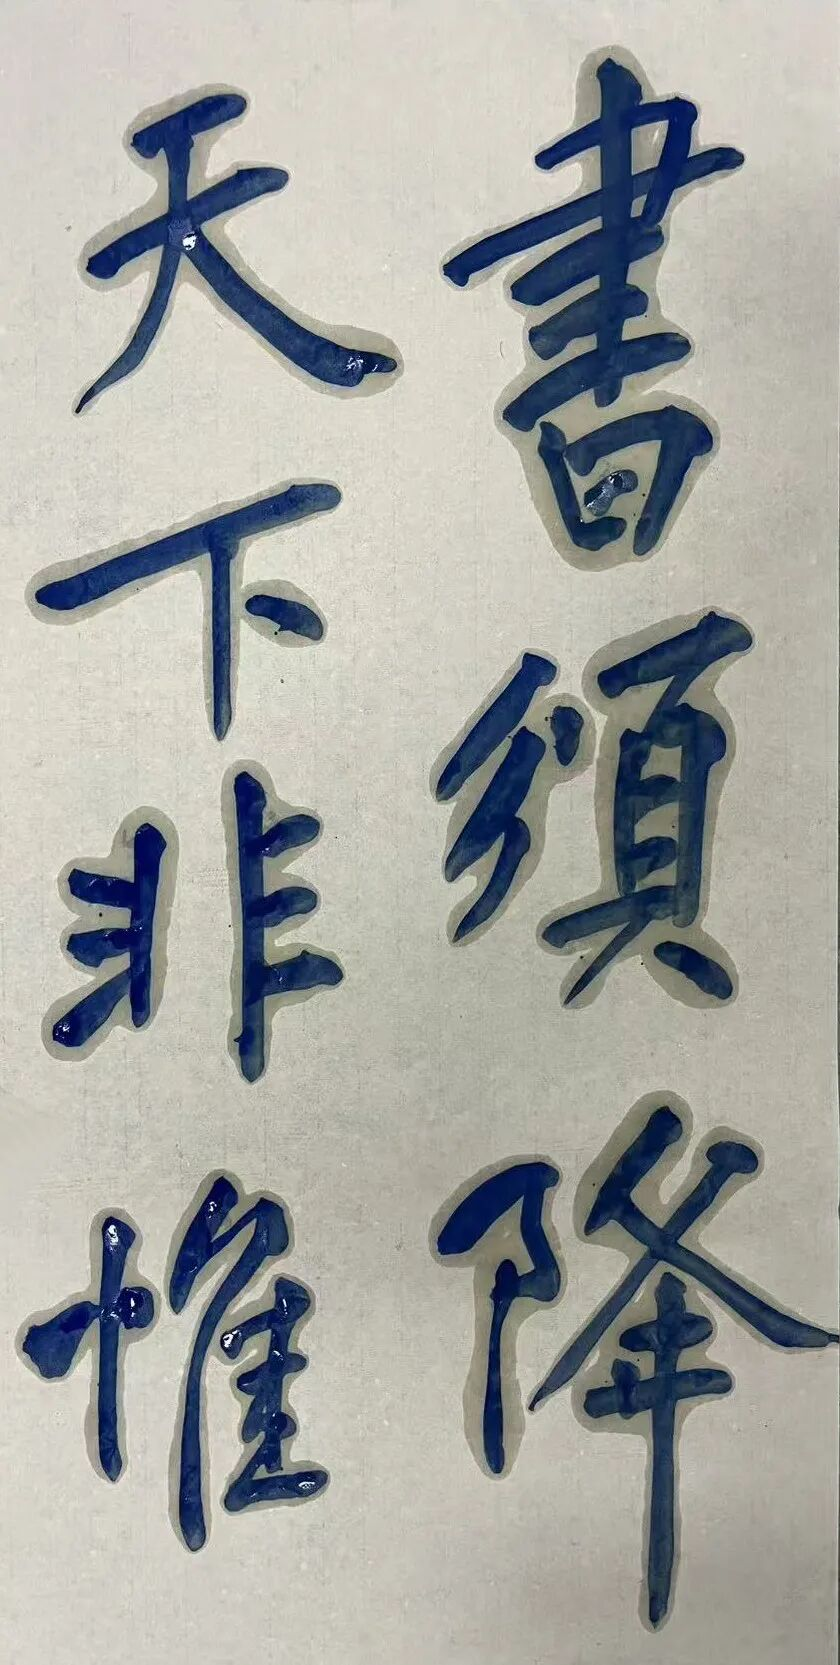 書須降
天下非惟